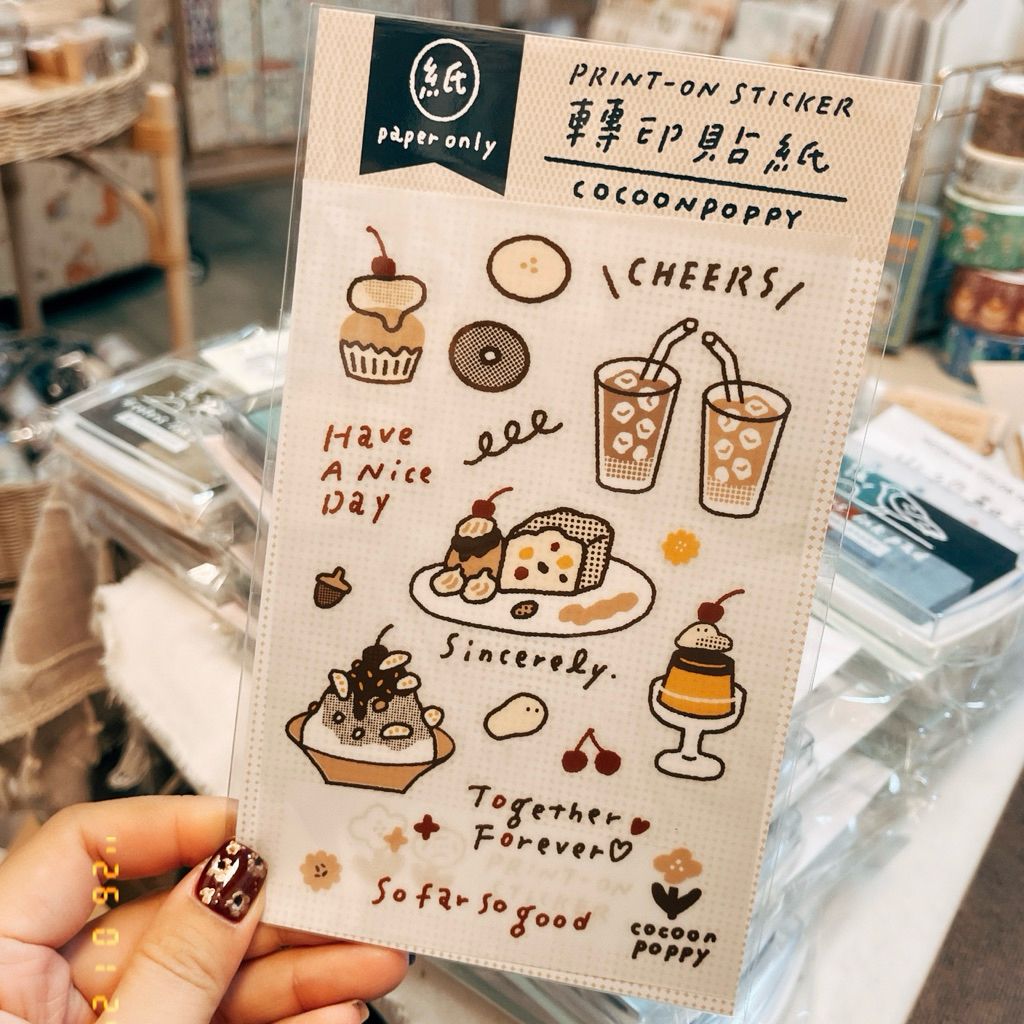 紙
paper only
PRINT-ON STICKER
轉印貼紙
COCOONPOPPY
CHEERS
Have
A Nice
Day
Sincerely.
Together
Forever
So far so good
cocoon
poppy